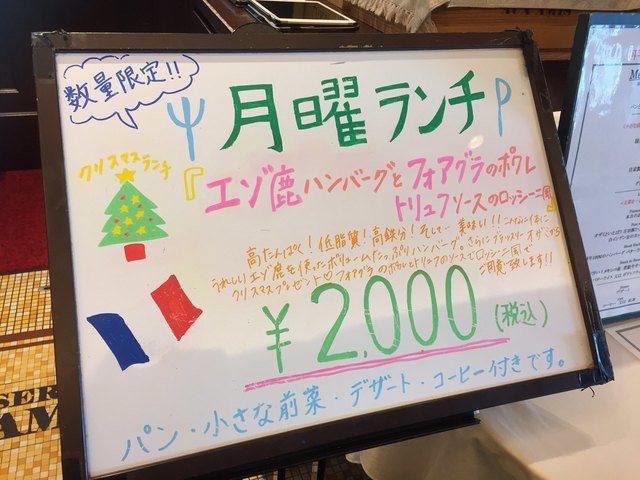 数量限定!!
月曜ランチ
クリスマスランチ
『エゾ鹿ハンバーグとフォアグラのポワレ
トリュフソースのロッシーニ風』
高たんぱく!低脂質!高鉄分!そして…美味い!!こんなにも体に
うれしいエゾ鹿を使ったボリュームたっぷりハンバーグ。さらにブラッスリーオザミから
クリスマスプレゼント♡フォアグラのポワレとトリュフのソースでロッシーニ風で
ご用意致します!!
¥2,000(税込)
パン・小さな前菜・デザート・コーヒー付きです。